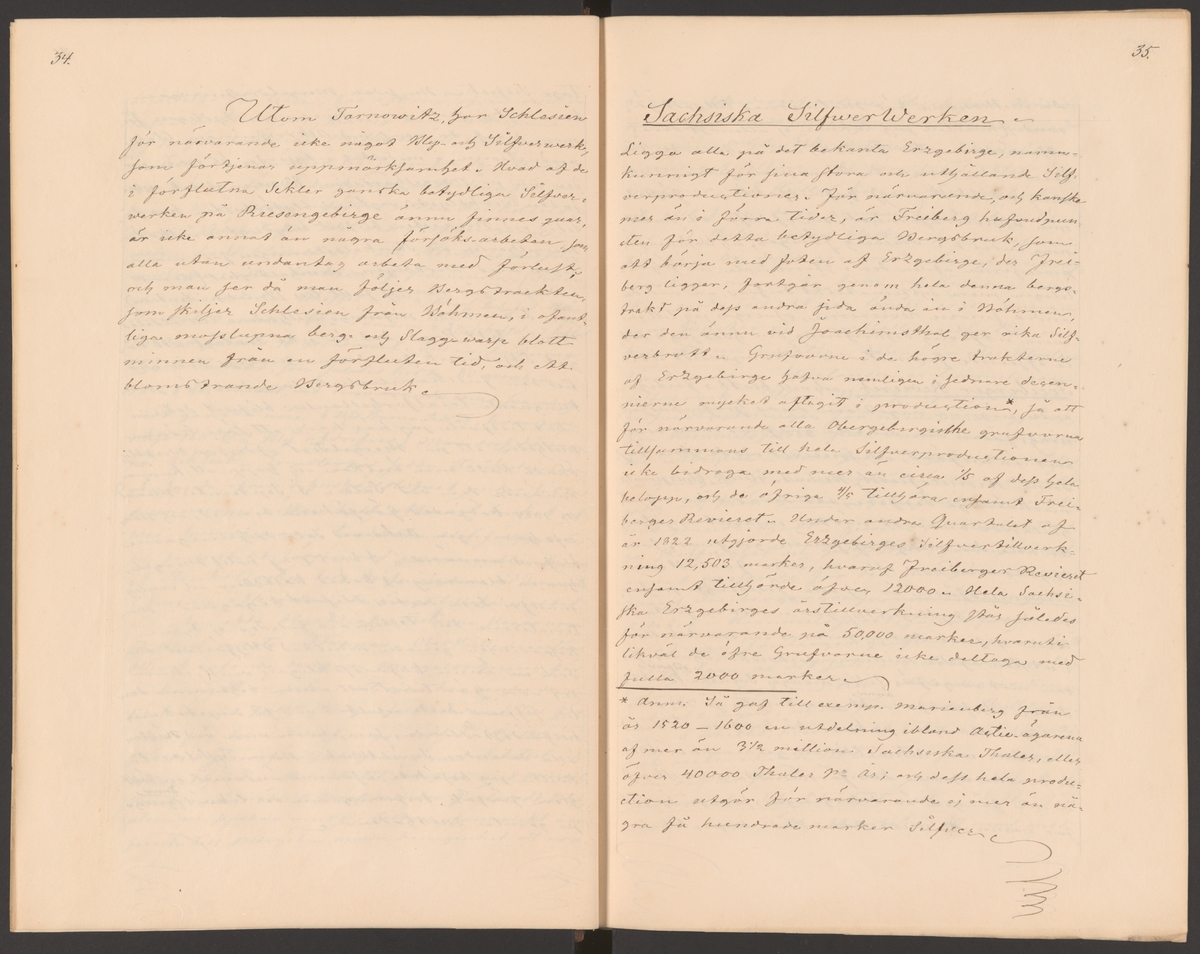 34.
Utom Tarnowitz, har Schlesien
för närvarande icke något Bly- och Silfververk,
som förtjenar uppmärksamhet. Hvad af de
i förflutna Sekler ganska betydliga Silfver-
werken på Riesengebirge ännu finnes quar,
är icke annat än några försöks-arbeten, som
alla utan undantag arbeta med förlust,
och man ser då man följer Bergstrackten,
som skiljer Schlesien från Böhmen, i ofant-
liga masslupna berg- och Slaggvarp blott
minnen från en förfluten tid, och ett
blomstrande Bergsbruk.
35.
Sachsiska SilfwerWerken
Ligga alla på det bekanta Erzgebirge, namn-
kunnigt för sina stora och uthållande Silf-
verproductioner. För närvarande, och kanske
mer än i förra tider, är Freiberg hufvudpun-
cten för detta betydliga Bergsbruk, som
att börja med foten af Erzgebirge, der Frei-
berg ligger, fortgår genom hela denna bergs-
trakt på dess andra sida ända in i Böhmen,
der den ännu vid Joachimsthal ger rika Silf-
verbrott. Grufvorne i de högre trakterne
af Erzgebirge hafva nemligen i sednare decen-
nierne mycket aftagit i production*, så att
för närvarande alla Obergebirgiske grufvorna
tillsammans till hela Silfverproductionen
icke bidraga med mer än circa 1/5 af dess hela
belopp, och de öfriga 4/5 tillhöra ensamt Frei-
berger Revieret. Under andra Quartalet af
år 1822 utgjorde Erzgebirges Silfvertillverk-
ning 12,503 marker, hvaraf Freiberger Revieret
ensamt tillhörde öfver 12000. Hela Sachsi-
ska Erzgebirges årstillverkning står således
för närvarande på 50,000 marker, hvaruti
likväl de öfre Grufvorne icke deltaga med
fulla 2000 marker.
* Anm: Så gaf till exemp. Marienberg från
år 1520 – 1600 en utdelning ibland Actie-ägarena
af mer än 3 1/2 million. Sachsiska Thaler, eller
öfver 40000 Thaler pr År; och dess hela produc-
ction utgör för närvarande ej mer än nå-
gra få hundrade marker Silfver.